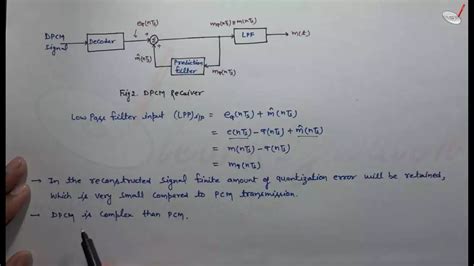 eq(nTs)
mq(nTs) ≅ m(nTs)
DPCM Signal
Decoder
Σ
+
+
LPF
m(t)
m̂(nTs)
Prediction filter
mq(nTs)
Fig2. DPCM Receiver
Low Pass filter input (LPF)i/p = eq(nTs) + m̂(nTs)
= e(nTs) - q(nTs) + m̂(nTs)
= m(nTs) - q(nTs)
= mq(nTs)
→ In the reconstructed signal finite amount of quantization error will be retained,
which is very small compared to PCM transmission.
→ DPCM is complex than PCM.